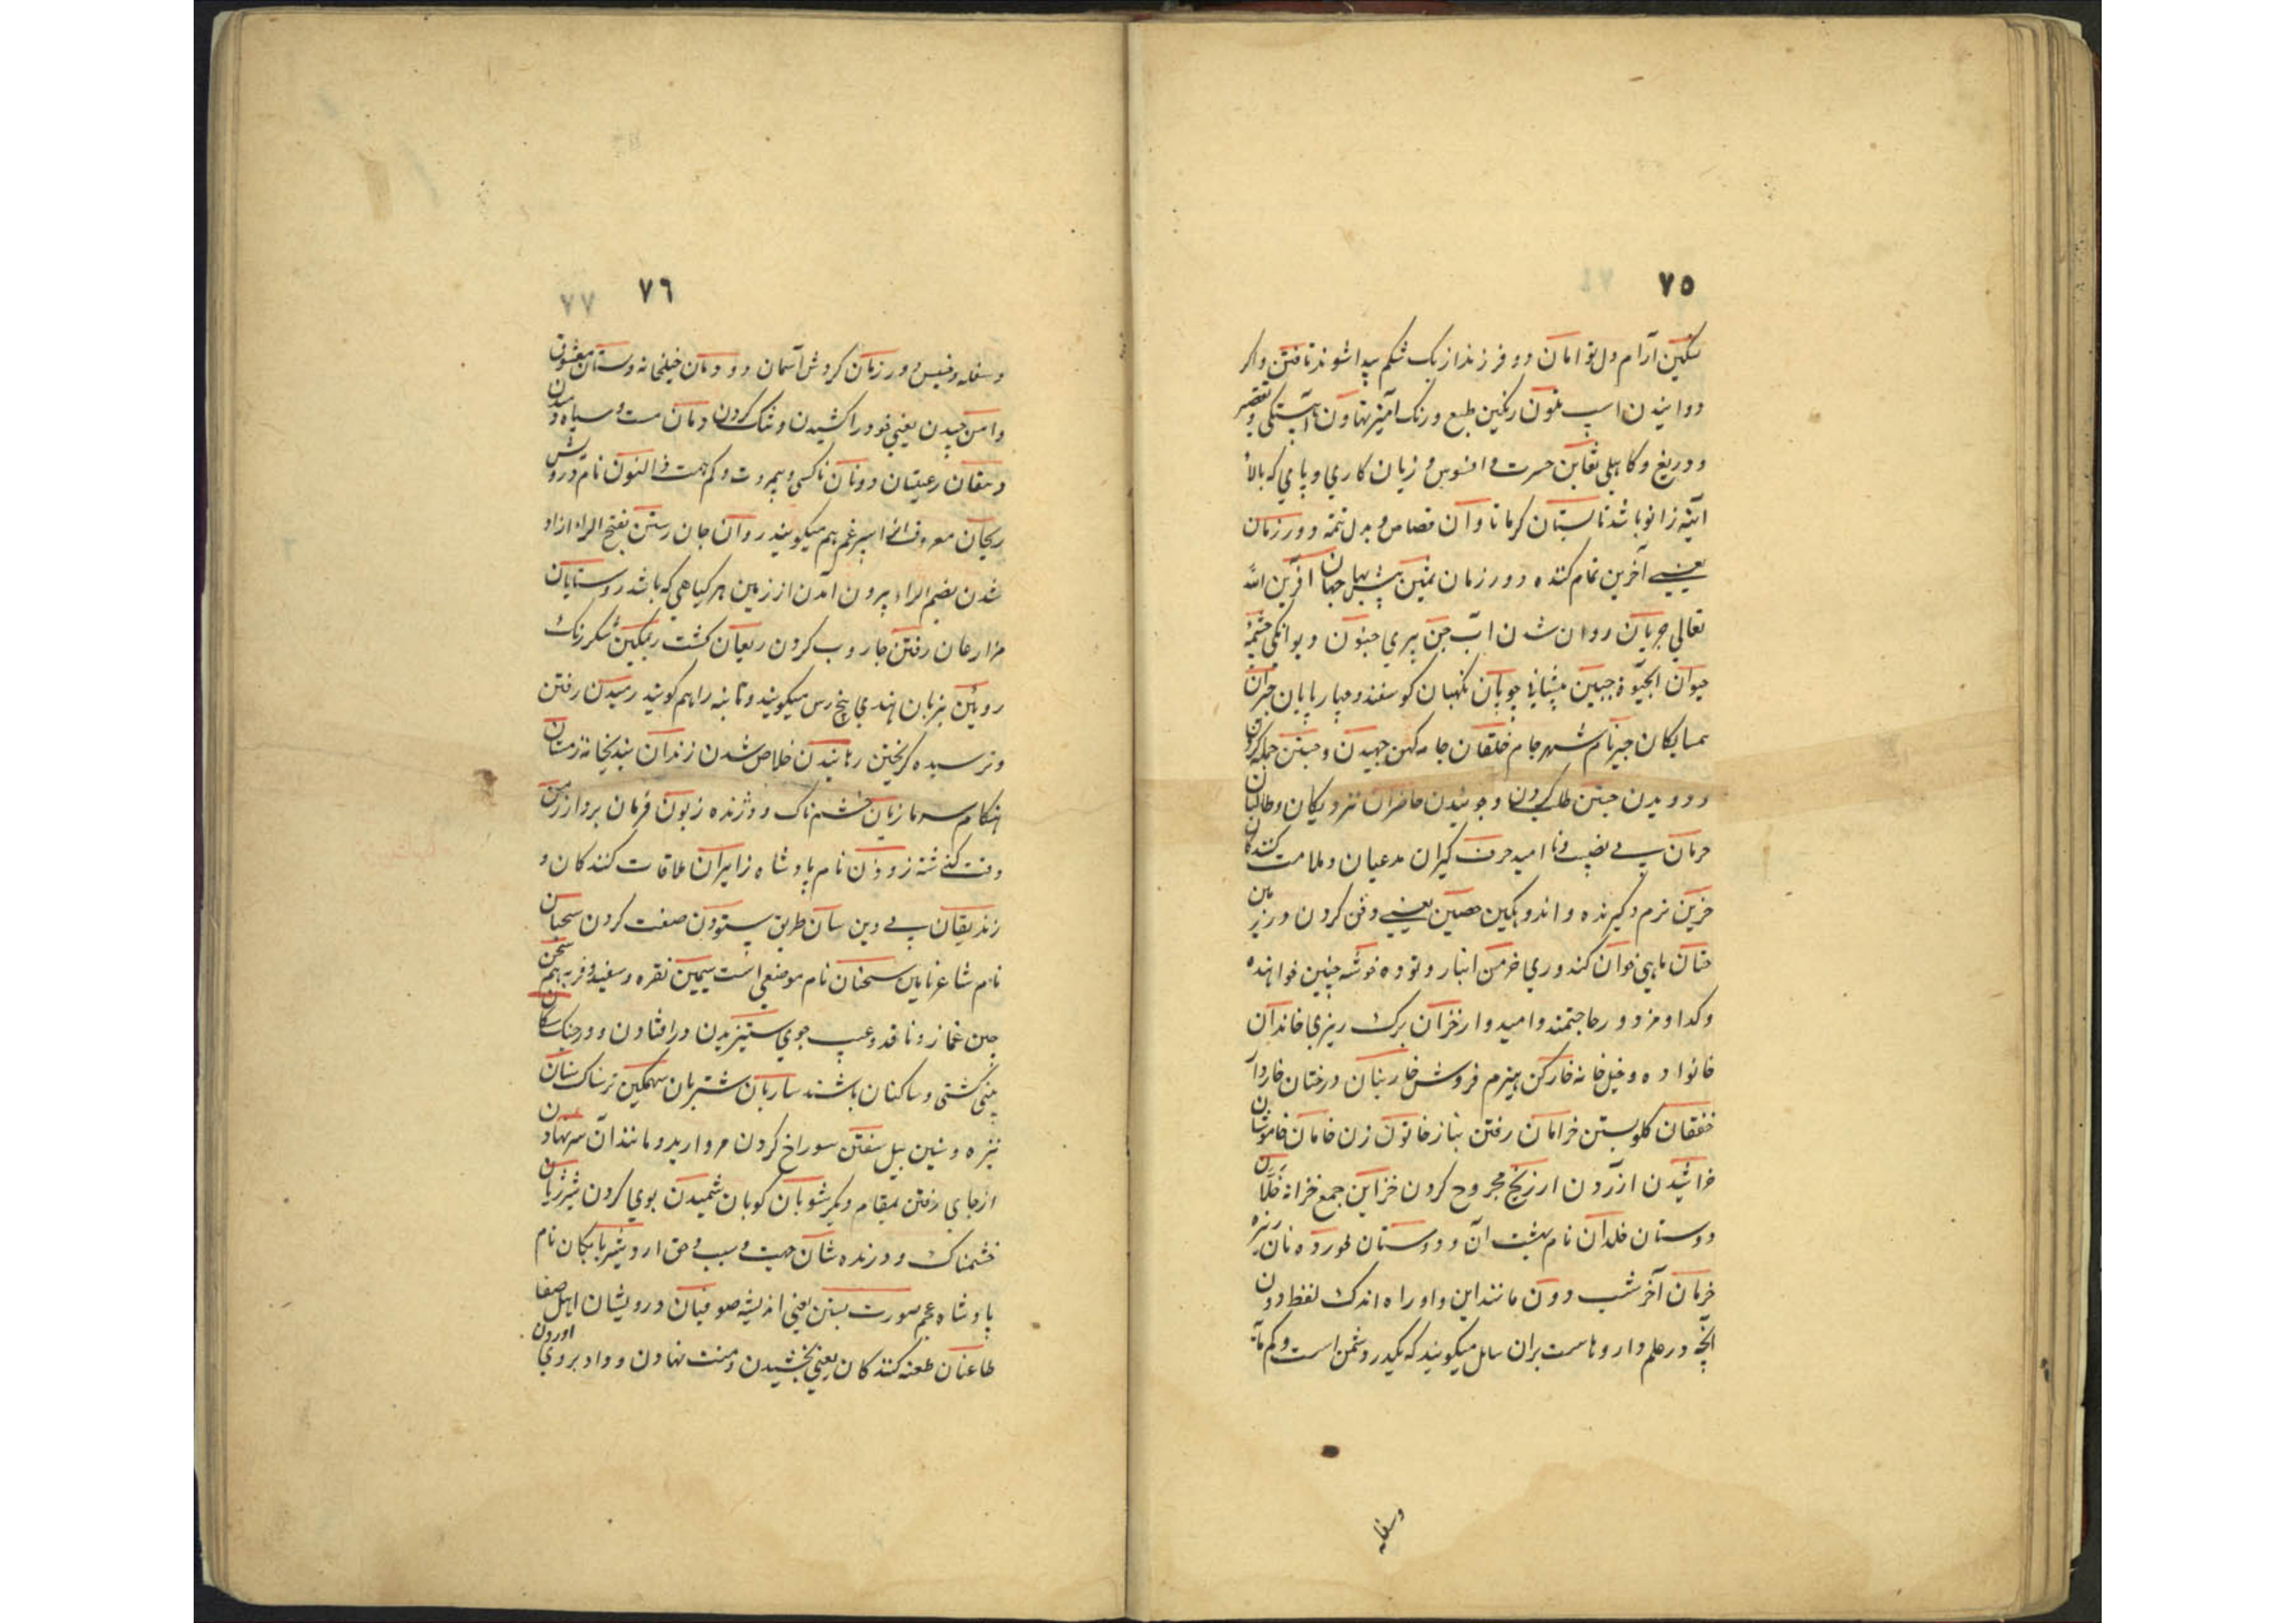 ٧٥
تسکین آرام دل توامان دو فرزند از یک شکم پیدا شوند تافتن واکر
دوانیدن اسپ تلون رنکین طبع و رنک آمیز تهاون آهستکی و تقصیر
و دریغ و کاهلی تغابن حسرت و افسوس و زیان کاری و پامی که بالاء
آیینه زانو باشد تابستان کرما تاوان قصاص و بدل تتمه دور زمان
یعنی آخرین تمام کننده دور زمان ثمین بیش بها جهان آفرین الله
تعالی جریان روان شدن آب جن پری جنون دیوانکی چشمه
حیوان الحیوة جبین پیشانی چوپان نکهبان کوسفند و چهارپایان جیران
همسایکان جیر نام شهر جام خلقان جامه کهن جهیدن و جستن حمله کردن
و دویدن جستن طلب کردن و جوئیدن حاضران نزدیکان و طالبان
حرمان بی نصیب و نا امید حرف کیران مدعیان و ملامت کنندکان
حزین نرم و کیرنده و اندوهکین حصین یعنی دفن کردن در زیر
حتان ماهی خوان کندوری خرمن انبار و توده خوشه چین خواهنده
و کدا و مزدور حاجتمند و امیدوار خزان برک ریزی خاندان
خانواده و خیل خانه خارکن هیزم فروش خاربنان درختان خاردار
خفقان کلو بستن خرامان رفتن بناز خاتون زن خامان خاموشان
خراشیدن ازردن ارزنج مجروح کردن خزاین جمع خزانه خلان
دوستان خلدان نام بهشت آن و دوستان خورده نان ریزه
خرمان آخر شب دون مانند این و او را ه اندک لفظ دون
آنچه در علم دار و هاست بران سایل میکویند که یکدر دشمن است و کم مایه
وسفله
٧٦
٧٧
و سفله و خسیس دور زمان کردش آسمان دودمان خیلخانه دستان معشوق
دامن چیدن یعنی خود را کشیدن و تنک کردن دمان مست و سیاه و
دهقان رعیتان دونان ناکس و بیمروت و کم همت ذالنون نام درویش
ریحان معروف ای اسپرغم هم میکویند روان جان رستن بفتح الراء ازاد
شدن بضم الراء بیرون آمدن از زمین هر کیاهی که باشد روستایان
مزارعان رفتن جاروب کردن ریعان کشت ریمکین
رویئن بزبان هندی پنج رس میکویند و تانبه را هم کویند رمیدن رفتن
و ترسیده کریختن رهانیدن خلاص شدن زندان بندیخانه زمستان
هنکام سرما زیان خشم ناک و درنده زبون فرمان بردار زمن
وقت کذشته زوزن نام پادشاه زایران ملاقات کنندکان و
زندیقان بی دین سان طریق ستودن صفت کردن سحبان
نام شاعر سمنان نام موضعی است سیمین نقره و سفید و فربه هم سخن
چین غماز و ناقد و عیب جوی ستیزیدن درافتادن و در جنک سکان
پنکی کشتی و ساکنان باشند ساربان شتربان سهمکین ترسناک سنان
نیزه و سین بیل سفتن سوراخ کردن مروارید و مانند آن سر نهادن
از جای رفتن بمقام دیکر شوبان کوبان شمیدن بوی کردن شیر ژیان
خشمناک و درنده شان جهت و سبب و حق اردشیر بابکان نام
پادشاه عجم صورت بستن یعنی اندیشه صوفیان درویشان اهل صفا
طاعنان طعنه کنندکان یعنی بخشیدن و منت نهادن و داد بروی اوردن